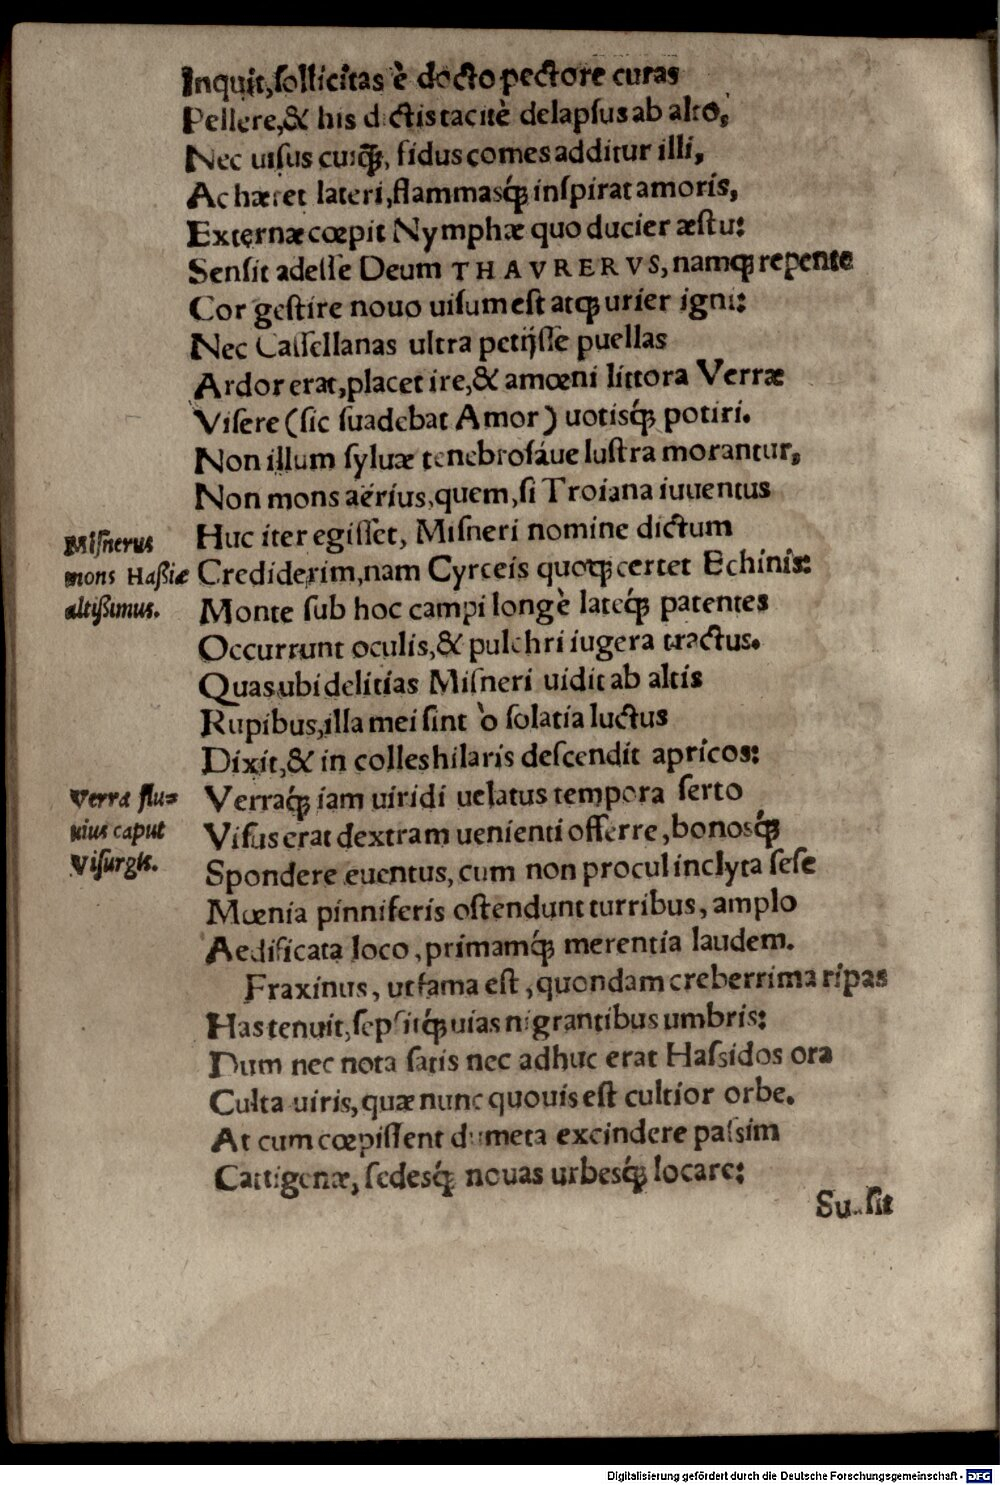 Inquit, sollicitas è docto pectore curas
Pellere, & his dictis tacitè delapsus ab alto,
Nec uisus cuiq́ꝫ, fidus comes additur illi,
Ac hæret lateri, flammasq́ꝫ inspirat amoris,
Externæ cœpit Nymphæ quo ducier æstu:
Sensit adesse Deum THAVRERVS, namqꝫ repente
Cor gestire nouo uisum est atqꝫ urier igni:
Nec Cassellanas ultra petijsse puellas
Ardor erat, placet ire, & amœni littora Verræ
Visere (sic suadebat Amor) uotisq́ꝫ potiri.
Non illum syluæ tenebrosáue lustra morantur,
Non mons aërius, quem, si Troiana iuuentus
Misnerus
mons Haßiæ
altißimus.
Huc iter egisset, Misneri nomine dictum
Crediderim, nam Cyrceis quoqꝫ certet Echinis:
Monte sub hoc campi longè lateq́ꝫ patentes
Occurrunt oculis, & pulchri iugera tractus.
Quas ubi delitias Misneri uidit ab altis
Rupibus, illa mei sint ò solatia luctus
Dixit, & in colles hilaris descendit apricos:
Verra flu=
uius caput
Visurgis.
Verraq́ꝫ iam uiridi uelatus tempora serto
Visus erat dextram uenienti offerre, bonosq́ꝫ
Spondere euentus, cum non procul inclyta sese
Mœnia pinniferis ostendunt turribus, amplo
Aedificata loco, primamq́ꝫ merentia laudem.
Fraxinus, ut fama est, quondam creberrima ripas
Has tenuit, sepsitq́ꝫ uias nigrantibus umbris:
Dum nec nota satis nec adhuc erat Hassidos ora
Culta uiris, quæ nunc quouis est cultior orbe.
At cum cœpissent dumeta excindere passim
Cattigenæ, sedesq́ꝫ nouas urbesq́ꝫ locare:
Digitalisierung gefördert durch die Deutsche Forschungsgemeinschaft - DFG